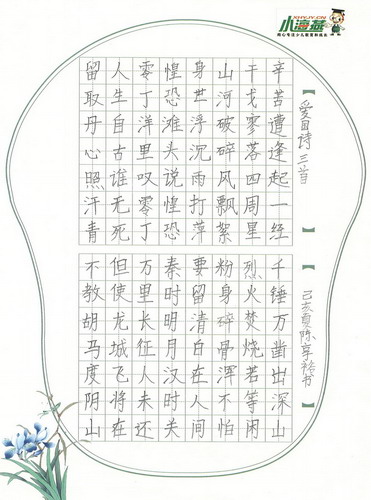 小海燕
XHYJY.CN
【爱国诗三首】
辛苦遭逢起一经
干戈寥落四周星
山河破碎风飘絮
身世浮沉雨打萍
惶恐滩头说惶恐
零丁洋里叹零丁
人生自古谁无死
留取丹心照汗青
【己亥夏陈享书】
千锤万凿出深山
烈火焚烧若等闲
粉身碎骨浑不怕
要留清白在人间
秦时明月汉时关
万里长征人未还
但使龙城飞将在
不教胡马度阴山